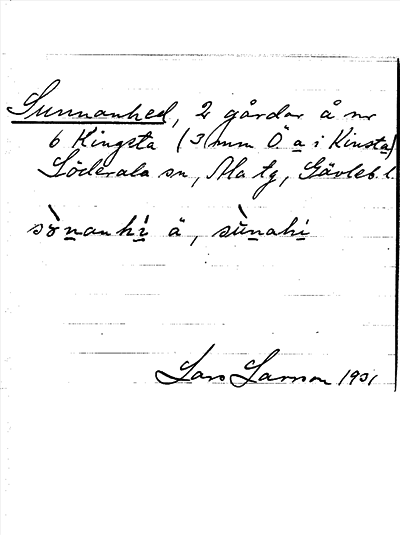 Sunnanhed, 2 gårdar å nr
6 Kingsta (3 mm Ö a i Kinsta)
Söderala sn, Ala tg, Gävleb. l.
sònanhì ä, sùnahi
Lars Larsson 1931